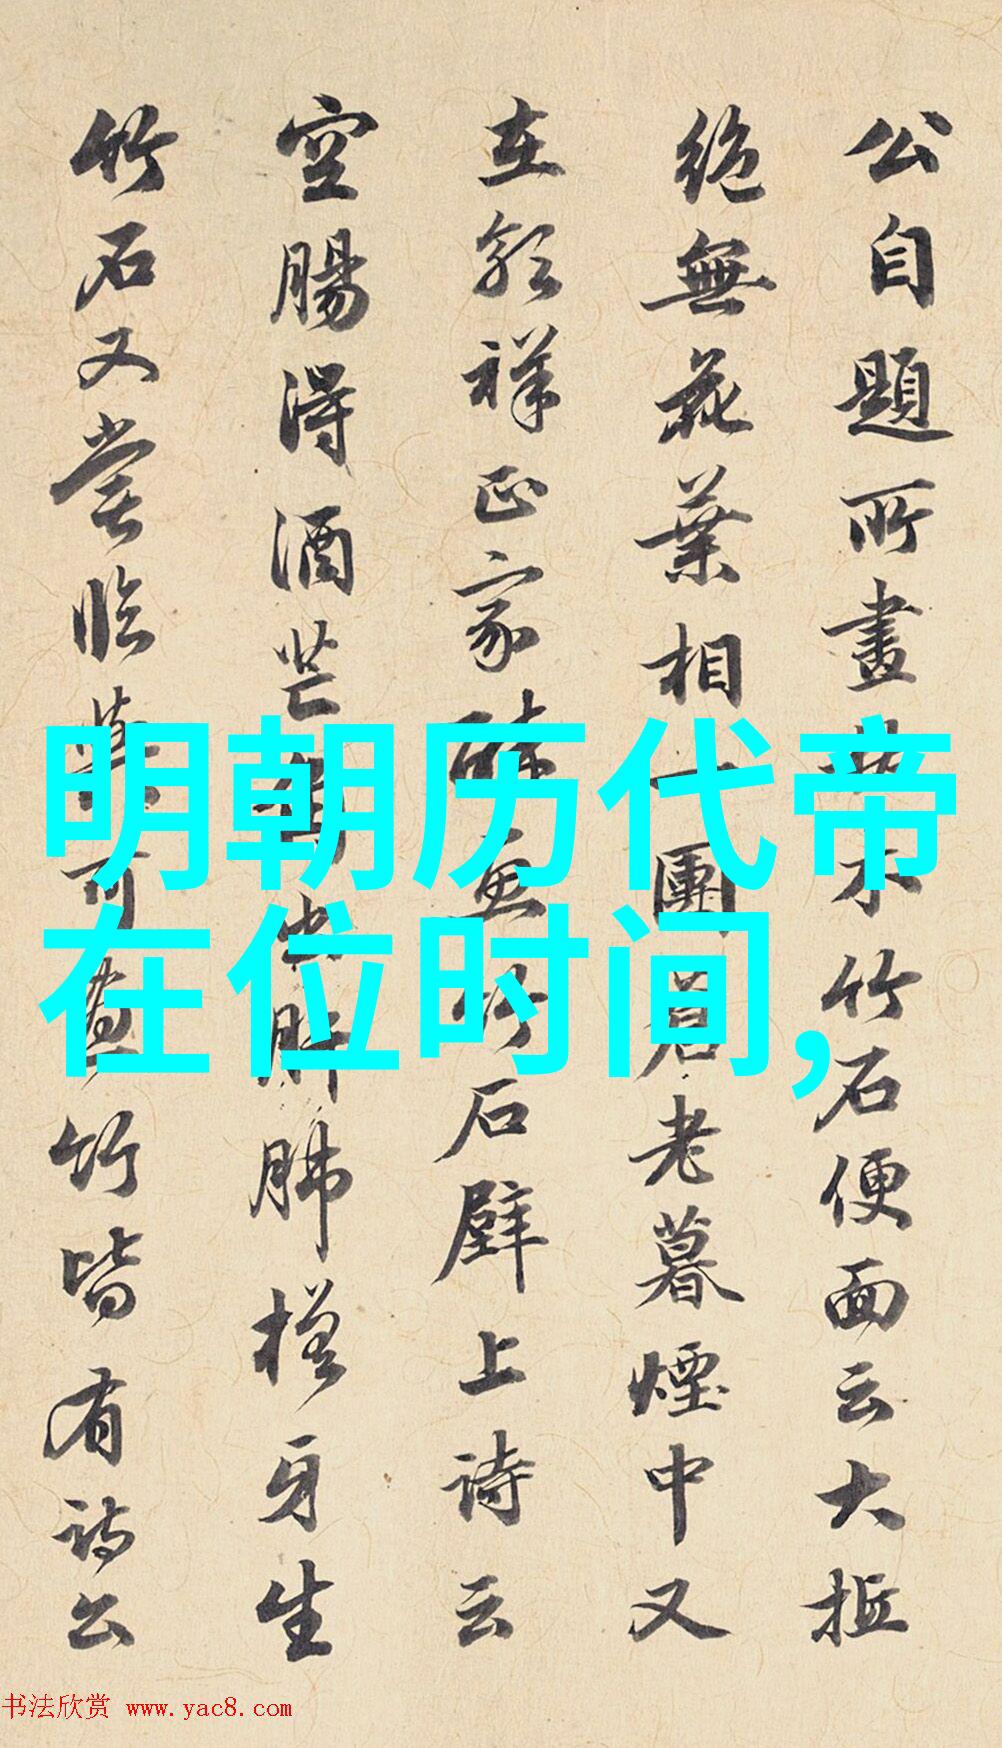 公自題所畫枯木竹石便面云大抵
絶無花葉相一團蒼老暮煙中又
在郭祥正家醉畫竹石壁上詩云
空腸得酒芒角出肝肺槎牙生
竹石又嘗臨與可畫竹皆有詩公
明朝历代帝
在位时间,
书法欣赏 www.yac8.com